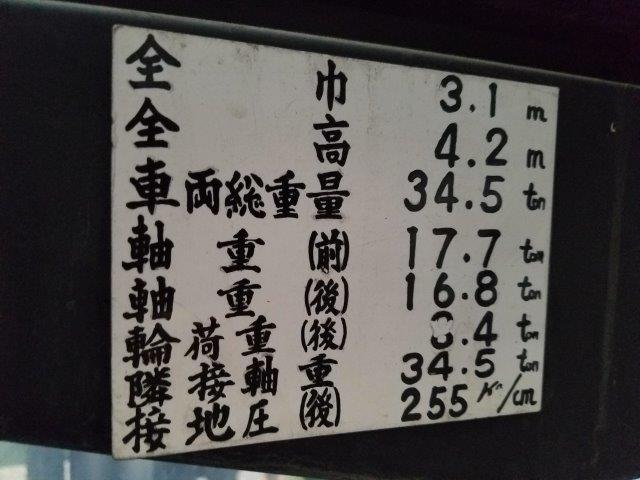 全 巾 3.1 m
全 高 4.2 m
車両総重量 34.5 ton
軸 重 (前) 17.7 ton
軸 重 (後) 16.8 ton
輪荷重 (後) 8.4 ton
隣接軸重 34.5 ton
接地圧 (後) 255 ㎏/cm